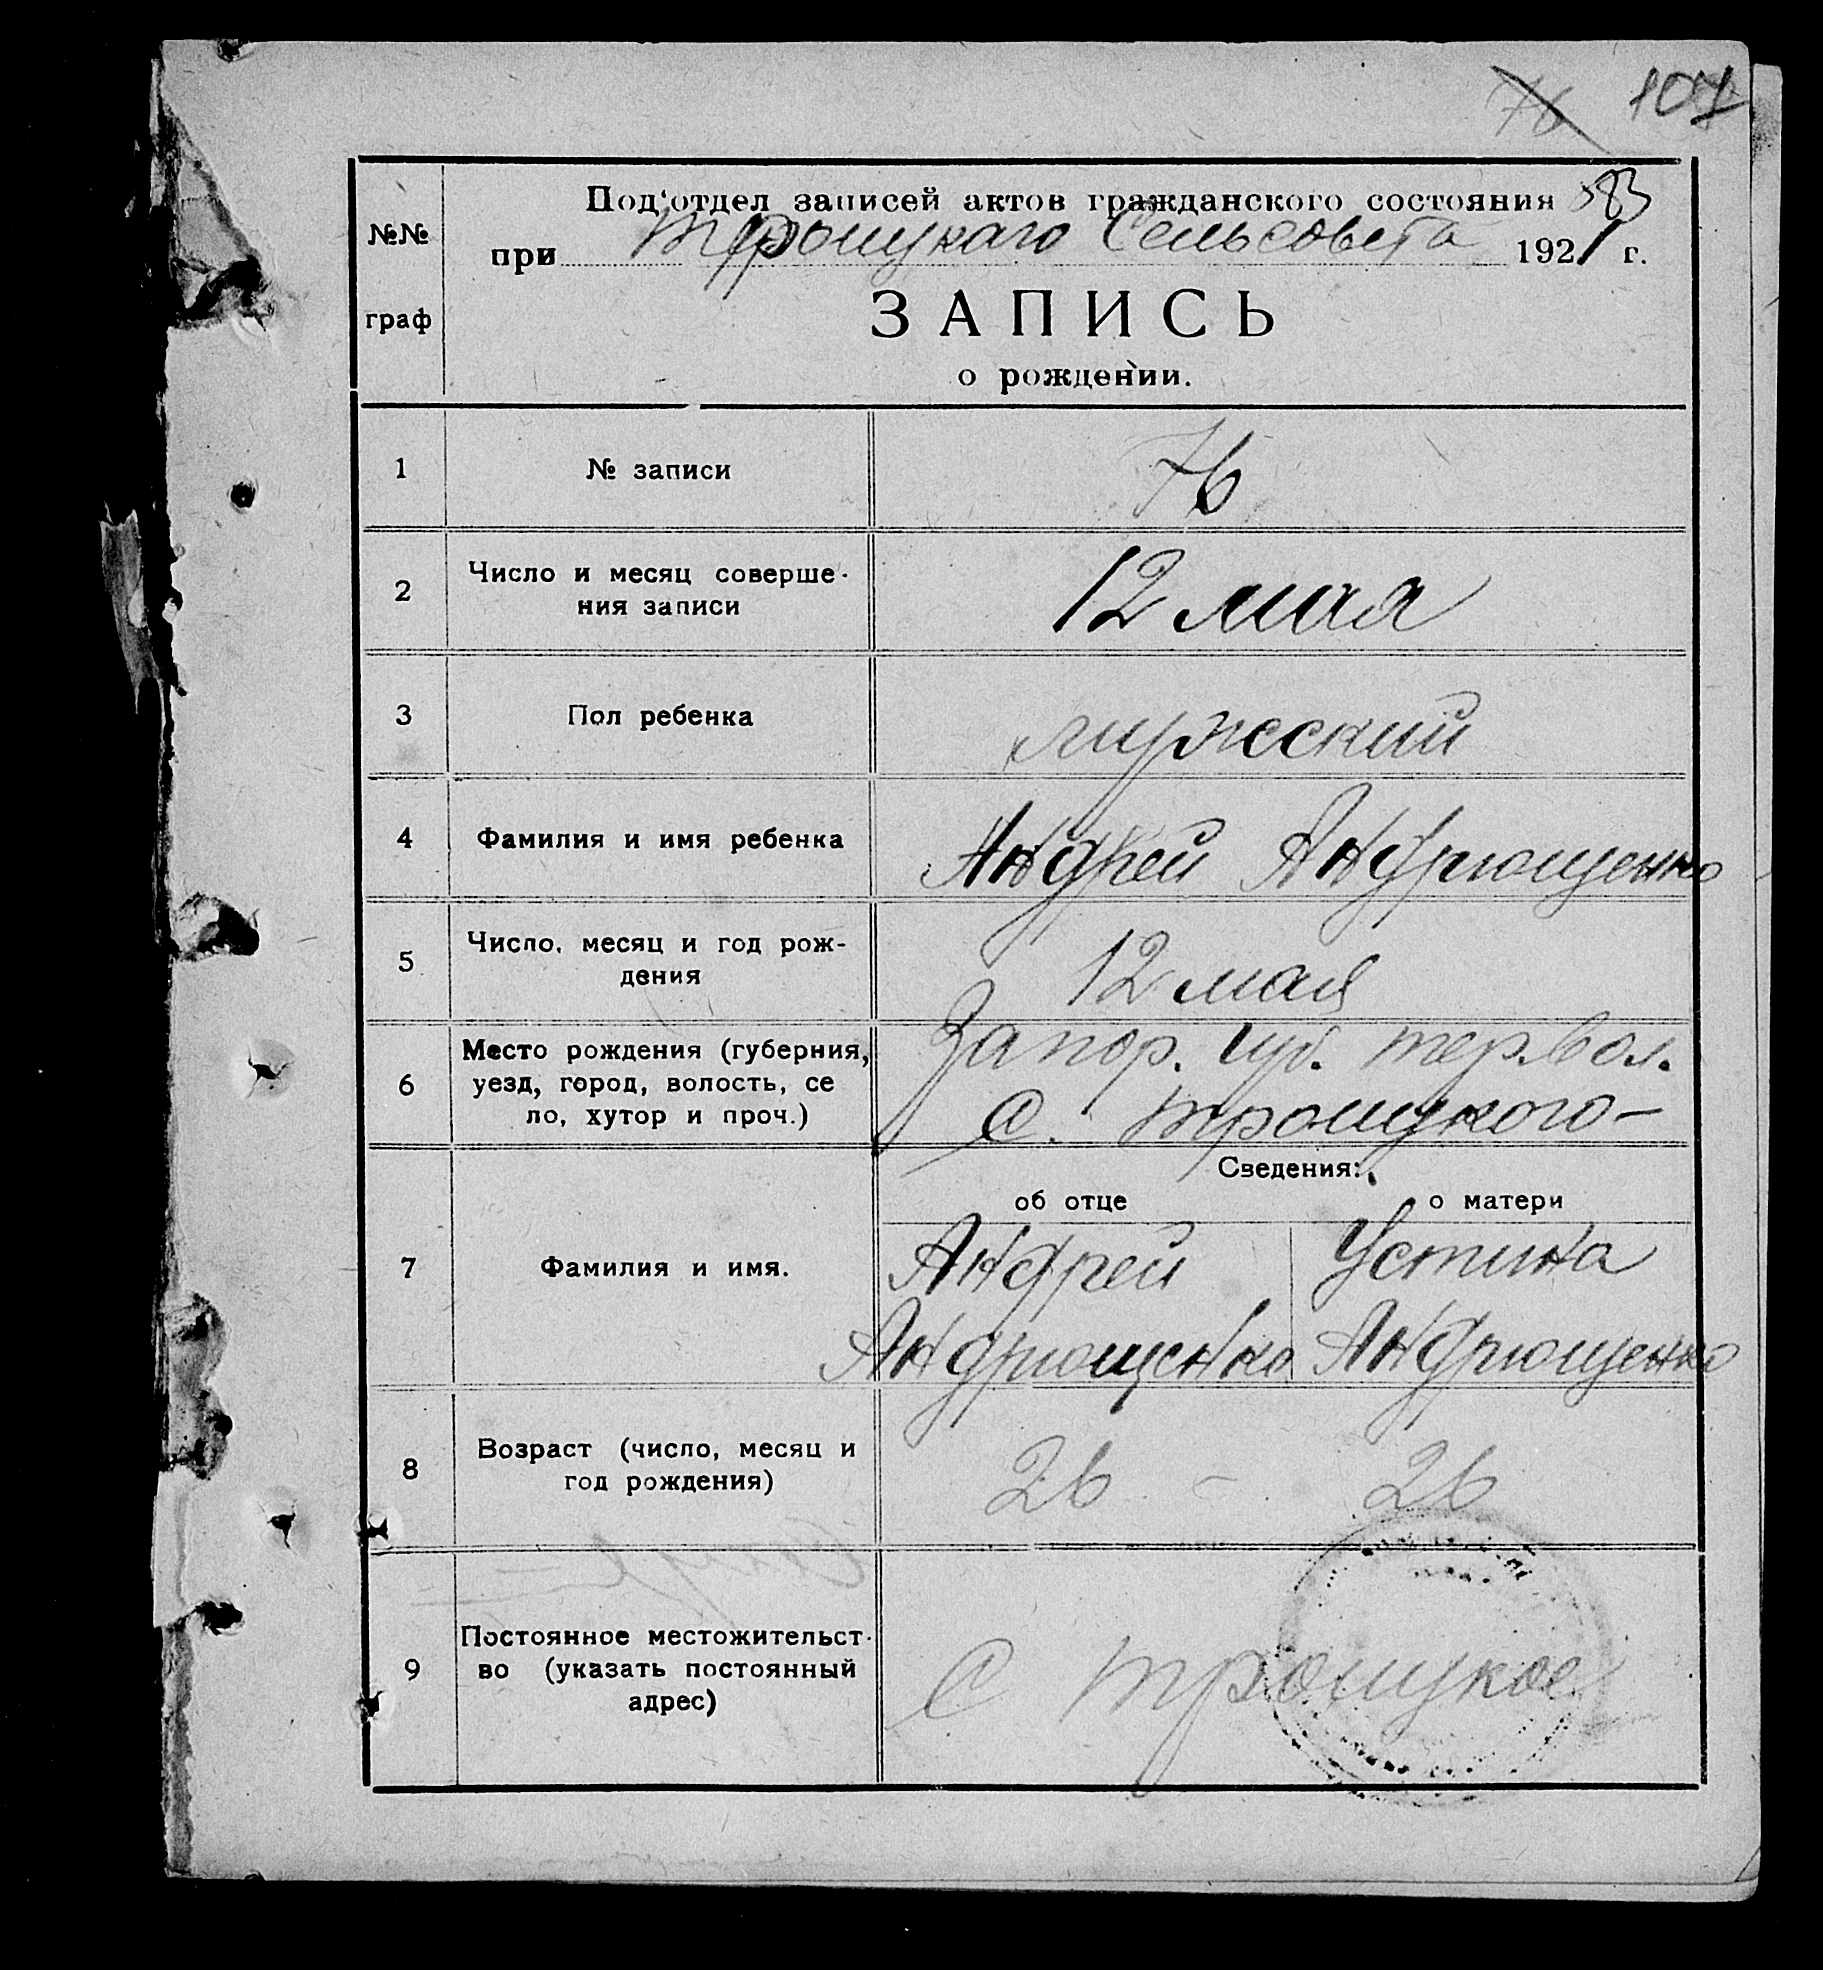 76 107
Под'отдел записей актов гражданского состояния 583
№№
при Троицкаго Сельсовета 1921 г.
граф
ЗАПИСЬ
о рождении.
1 № записи 76
2 Число и месяц соверше-
ния записи 12 мая
3 Пол ребенка мужеский
4 Фамилия и имя ребенка Андрей Андрющенко
5 Число, месяц и год рож-
дения 12 мая
6 Место рождения (губерния, Запор. губ. тер. вол.
уезд, город, волость, се
ло, хутор и проч.) С. троицкого-
Сведения:
об отце о матери
7 Фамилия и имя. Андрей Устина
Андрющенко Андрющенко
8 Возраст (число, месяц и
год рождения) 26 - 26
9 Постоянное местожительст-
во (указать постоянный
адрес) С троицкое